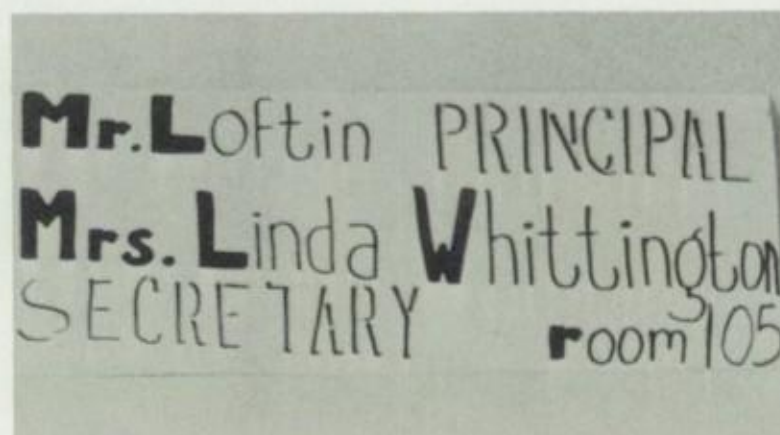 Mr. Loftin PRINCIPAL
Mrs. Linda Whittington
SECRETARY room 105